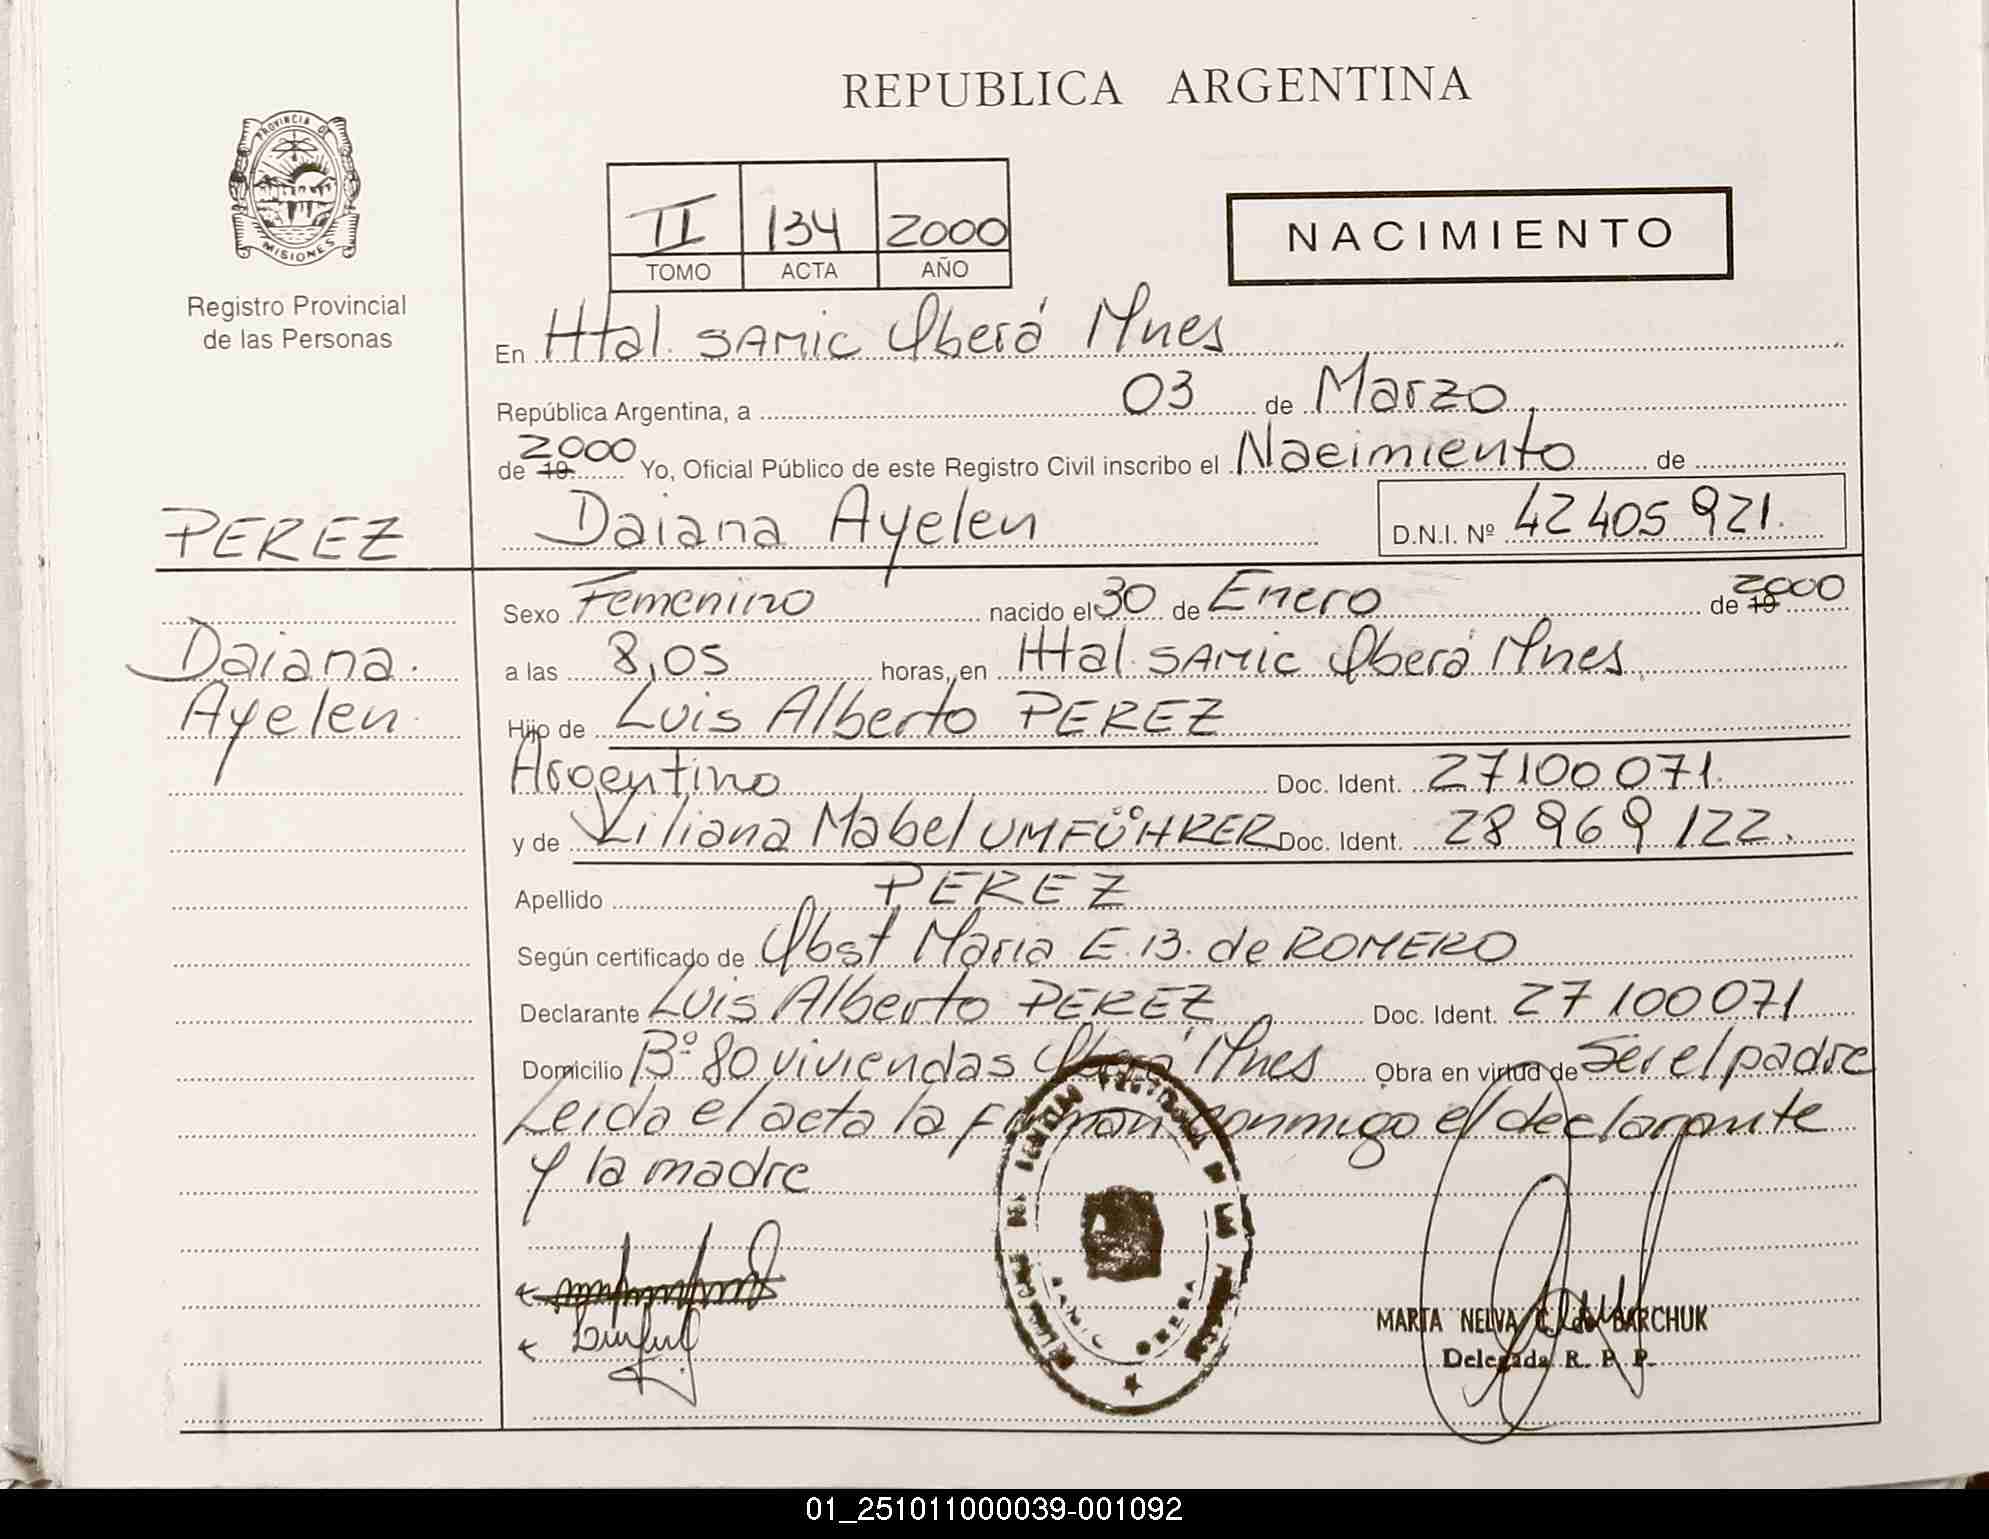 REPUBLICA ARGENTINA
PROVINCIA DE
MISIONES
Registro Provincial
de las Personas
II 134 2000
TOMO ACTA AÑO
NACIMIENTO
En Htal. SAMIC Oberá Mnes
República Argentina, a 03 de Marzo
de 19 2000 Yo, Oficial Público de este Registro Civil inscribo el Nacimiento de
PEREZ
Daiana Ayelen D.N.I. Nº 42405921.
Sexo Femenino nacido el 30 de Enero de 19 2000
Daiana.
Ayelen.
a las 8,05 horas, en Htal. SAMIC Oberá Mnes
Hijo de Luis Alberto PEREZ
Argentino Doc. Ident. 27100071.
y de Liliana Mabel UMFÜHRER Doc. Ident. 28969122.
Apellido PEREZ
Según certificado de Obst Maria E. B. de ROMERO
Declarante Luis Alberto PEREZ Doc. Ident. 27100071
Domicilio Bº 80 viviendas Oberá Mnes Obra en virtud de Ser el padre
Leida el acta la firman conmigo el declarante
y la madre
SAMIC OBERA
MARTA NELVA C. de BARCHUK
Delegada R. P. P.
01_251011000039-001092